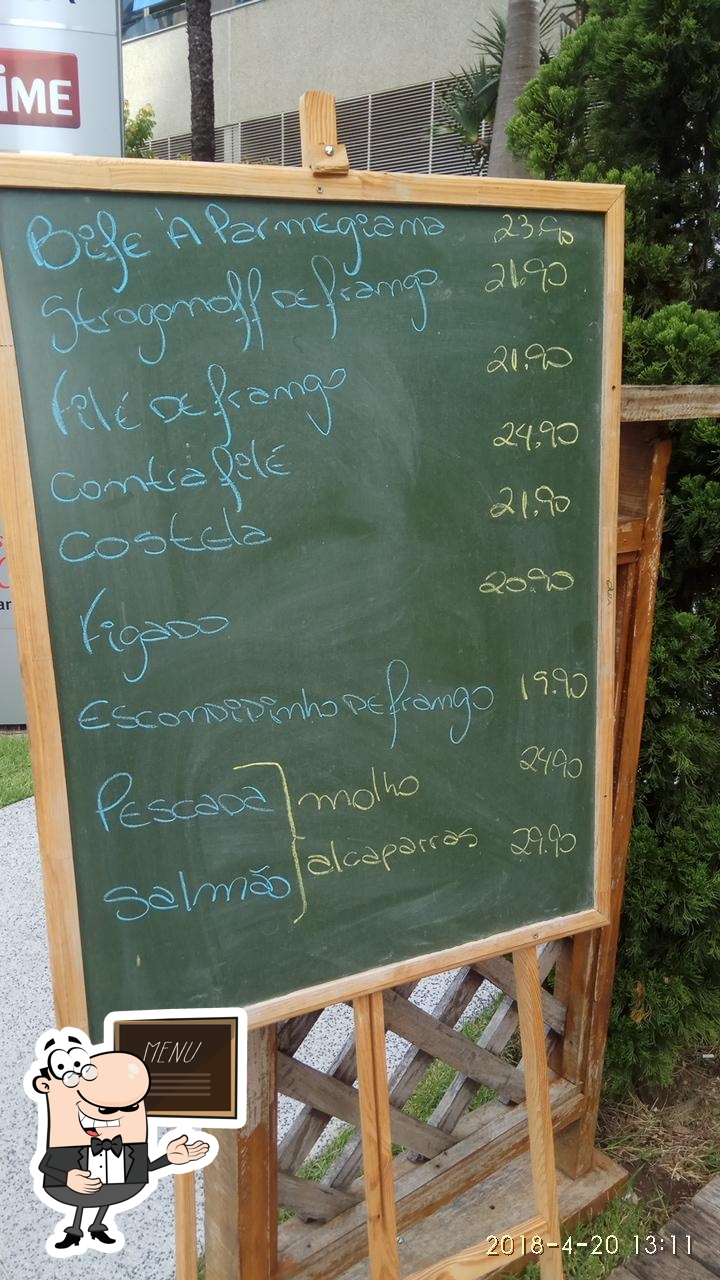 iME
Bife 'A Parmegiana 23.90
Strogonoff De frango 21.90
Filé De frango 21.90
Contra filé 24.90
Costela 21.90
Figado 20.90
Escondidinho De frango 19.90
Pescada molho 24.90
Salmão alcaparras 29.90
ar
MENU
2018-4-20 13:11